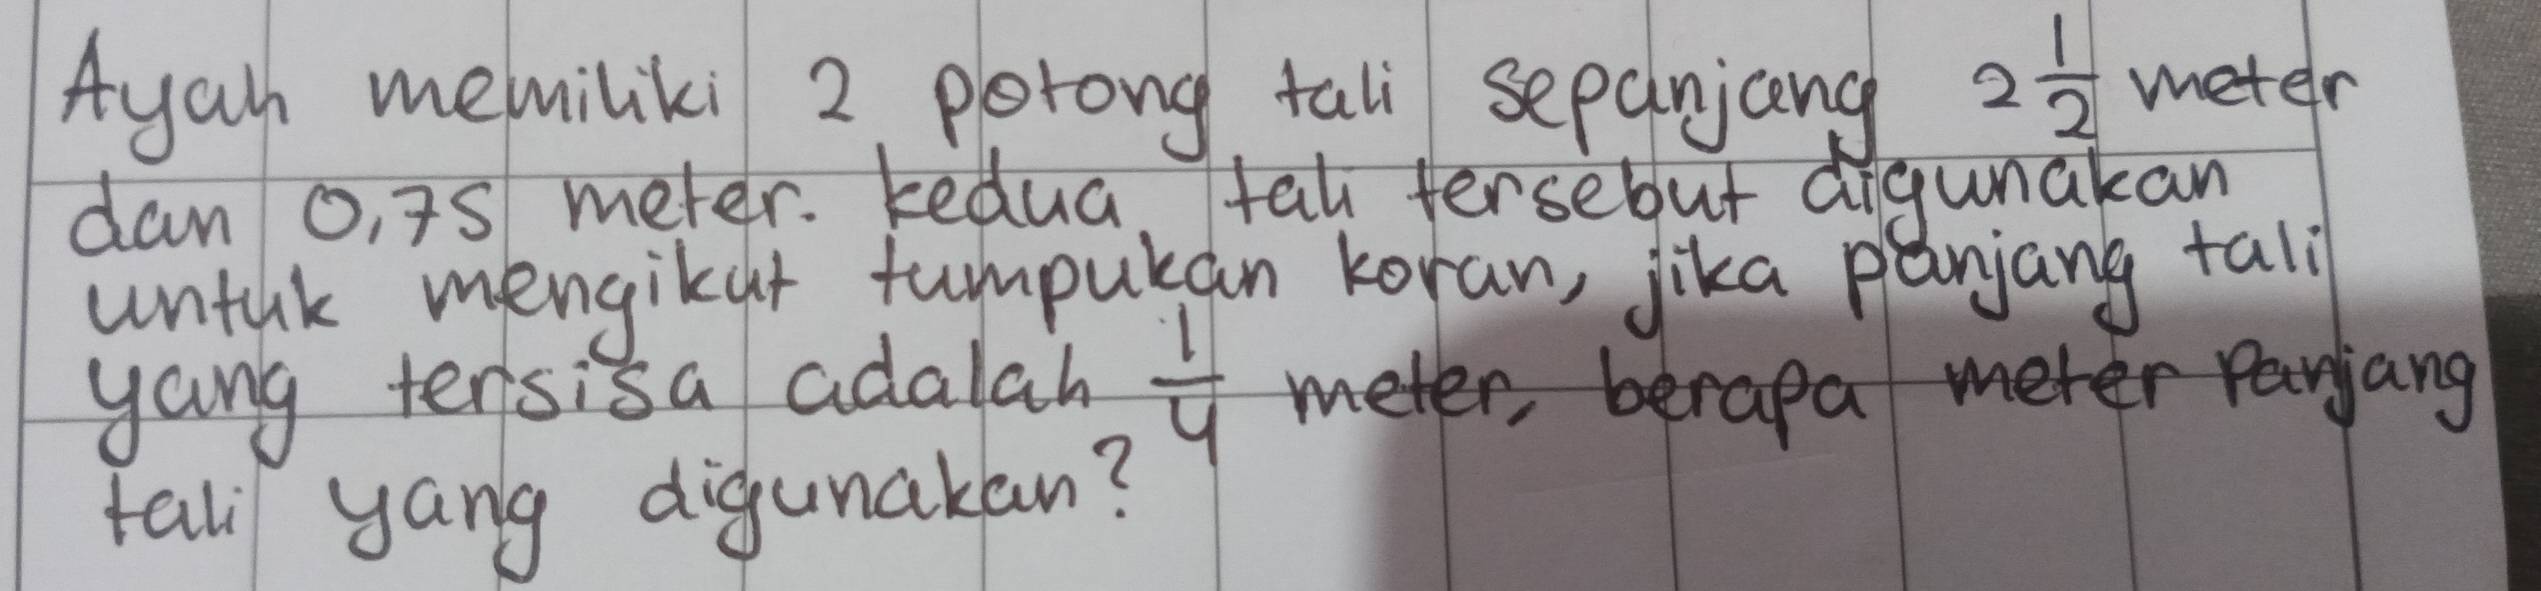 Ayah memiliki 2 potong tali sepanjang 2 1/2 meter
dan 0,75 meter. kedua tali tersebut digunakan
untuk mengikat tumpukan koran, jika panjang tali
yang tersisa adalah 1/4 meter, berapa meter Panjang
tali yang digunakan?